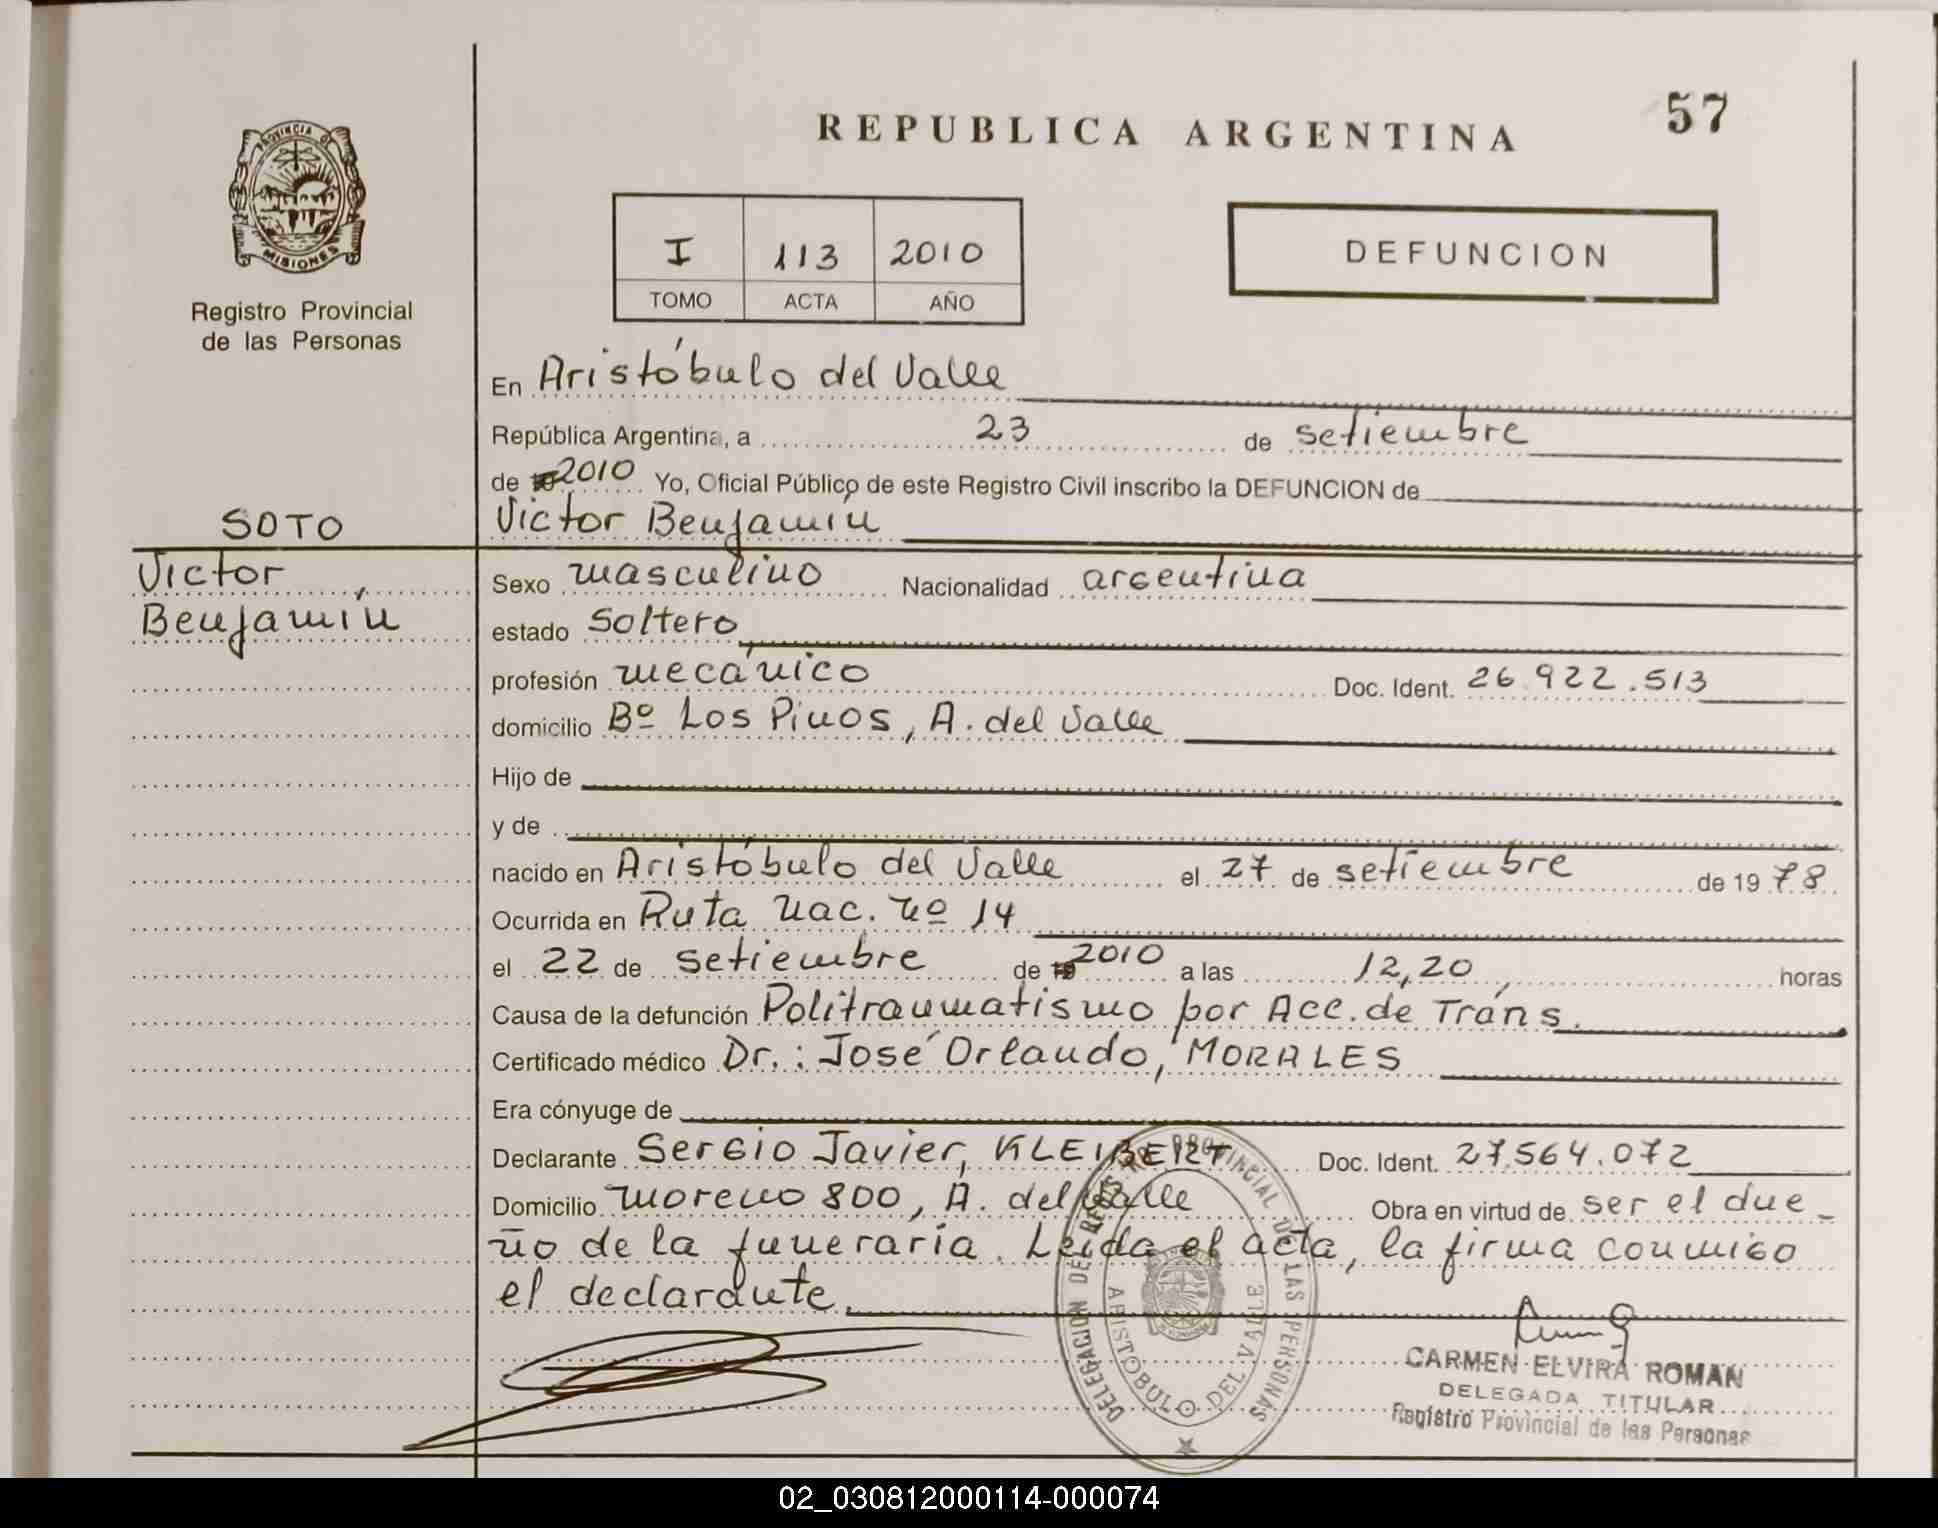 57
REPUBLICA ARGENTINA
PROVINCIA DE
MISIONES
Registro Provincial
de las Personas
I 113 2010
TOMO ACTA AÑO
DEFUNCION
En Aristóbulo del Valle
República Argentina, a 23 de setiembre
de 19 2010 Yo, Oficial Público de este Registro Civil inscribo la DEFUNCION de
SOTO
Victor
Benjamín
Victor Benjamín
Sexo masculino Nacionalidad argentina
estado Soltero
profesión mecánico Doc. Ident. 26.922.513
domicilio Bº Los Pinos, A. del Valle
Hijo de
y de
nacido en Aristóbulo del Valle el 27 de setiembre de 1978
Ocurrida en Ruta Nac. Nº 14
el 22 de setiembre de 19 2010 a las 12,20 horas
Causa de la defunción Politraumatismo por Acc. de Tráns.
Certificado médico Dr.: José Orlando, MORALES
Era cónyuge de
Declarante Sergio Javier, KLEIBERT Doc. Ident. 27.564.072
Domicilio Moreno 800, A. del Valle Obra en virtud de ser el due-
ño de la funeraria. Leída el acta, la firma conmigo
el declarante.
DELEGACION DEL REGISTRO PROVINCIAL DE LAS PERSONAS
ARISTOBULO DEL VALLE
CARMEN ELVIRA ROMAN
DELEGADA TITULAR
Registro Provincial de las Personas
02_030812000114-000074